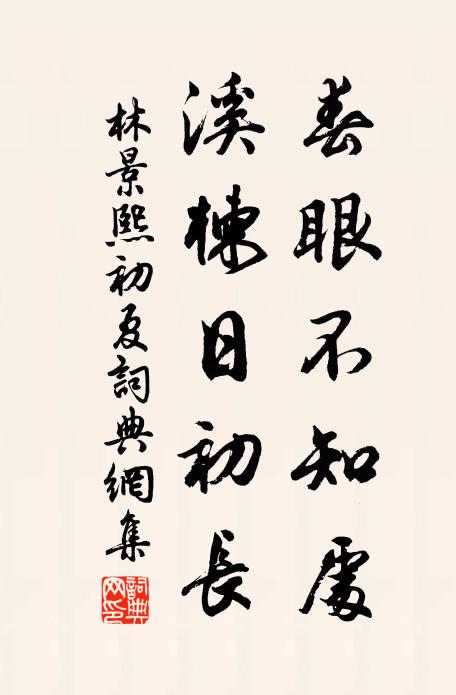 春眼不知處
溪楝日初長
林景熙初夏詞典網集
詞典
网印